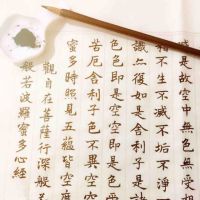 般若波羅蜜多心經
觀自在菩薩行深般若
蜜多時照見五蘊皆空
苦厄舍利子色不異空
色色即是空空即是
識亦復如是舍利子是
相不生不滅不垢不淨
減是故空中無色無受想